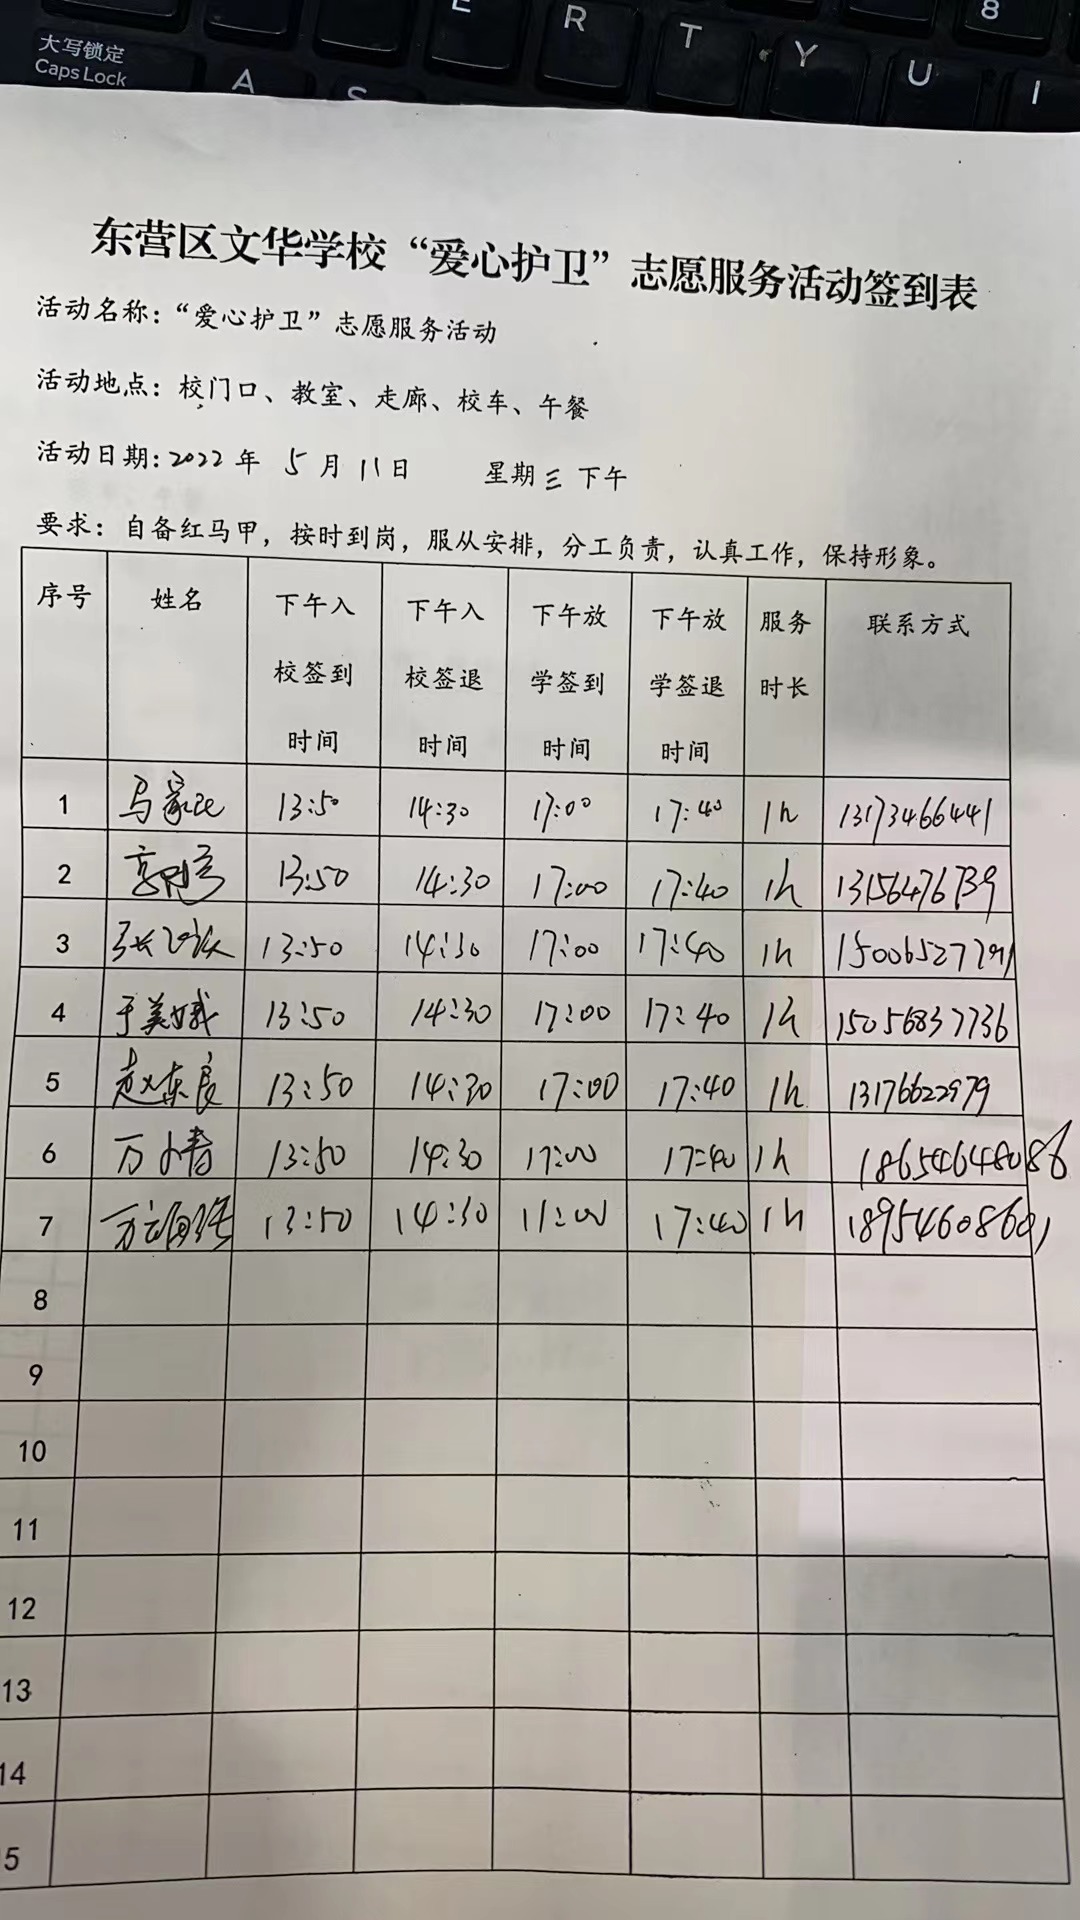 8
E R T Y U I
大写锁定
Caps Lock A S
东营区文华学校“爱心护卫”志愿服务活动签到表
活动名称:“爱心护卫”志愿服务活动
活动地点:校门口、教室、走廊、校车、午餐
活动日期:2022年 5月11日 星期三 下午
要求:自备红马甲,按时到岗,服从安排,分工负责,认真工作,保持形象。
序号 姓名 下午入校签到时间 下午入校签退时间 下午放学签到时间 下午放学签退时间 服务时长 联系方式
1 13:50 14:30 17:00 17:40 1h 13173466441
2 13:50 14:30 17:00 17:40 1h 13156476739
3 13:50 14:30 17:00 17:40 1h
4 于美娥 13:50 14:30 17:00 17:40 1h 15056837736
5 赵东良 13:50 14:30 17:00 17:40 1h 13176622979
6 13:50 14:30 17:00 17:40 1h
7 13:50 14:30 17:40 1h 18954608601
8
9
10
11
12
13
14
5